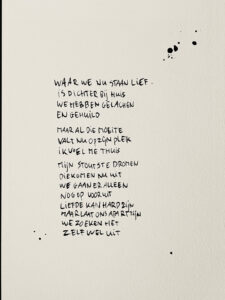 WAAR WE NU STAAN LIEF
IS DICHTER BIJ HUIS
WE HEBBEN GELACHEN
EN GEHUILD
MAAR AL DIE MOEITE
VALT NU OP ZIJN PLEK
IK VOEL ME THUIS
MIJN STOUTSTE DROMEN
DIE KOMEN NU UIT
WE GAAN ER ALLEEN
NOG OP VOORUIT
LIEFDE KAN HARD ZIJN
MAAR LAAT ONS APART ZIJN
WE ZOEKEN HET
ZELF WEL UIT